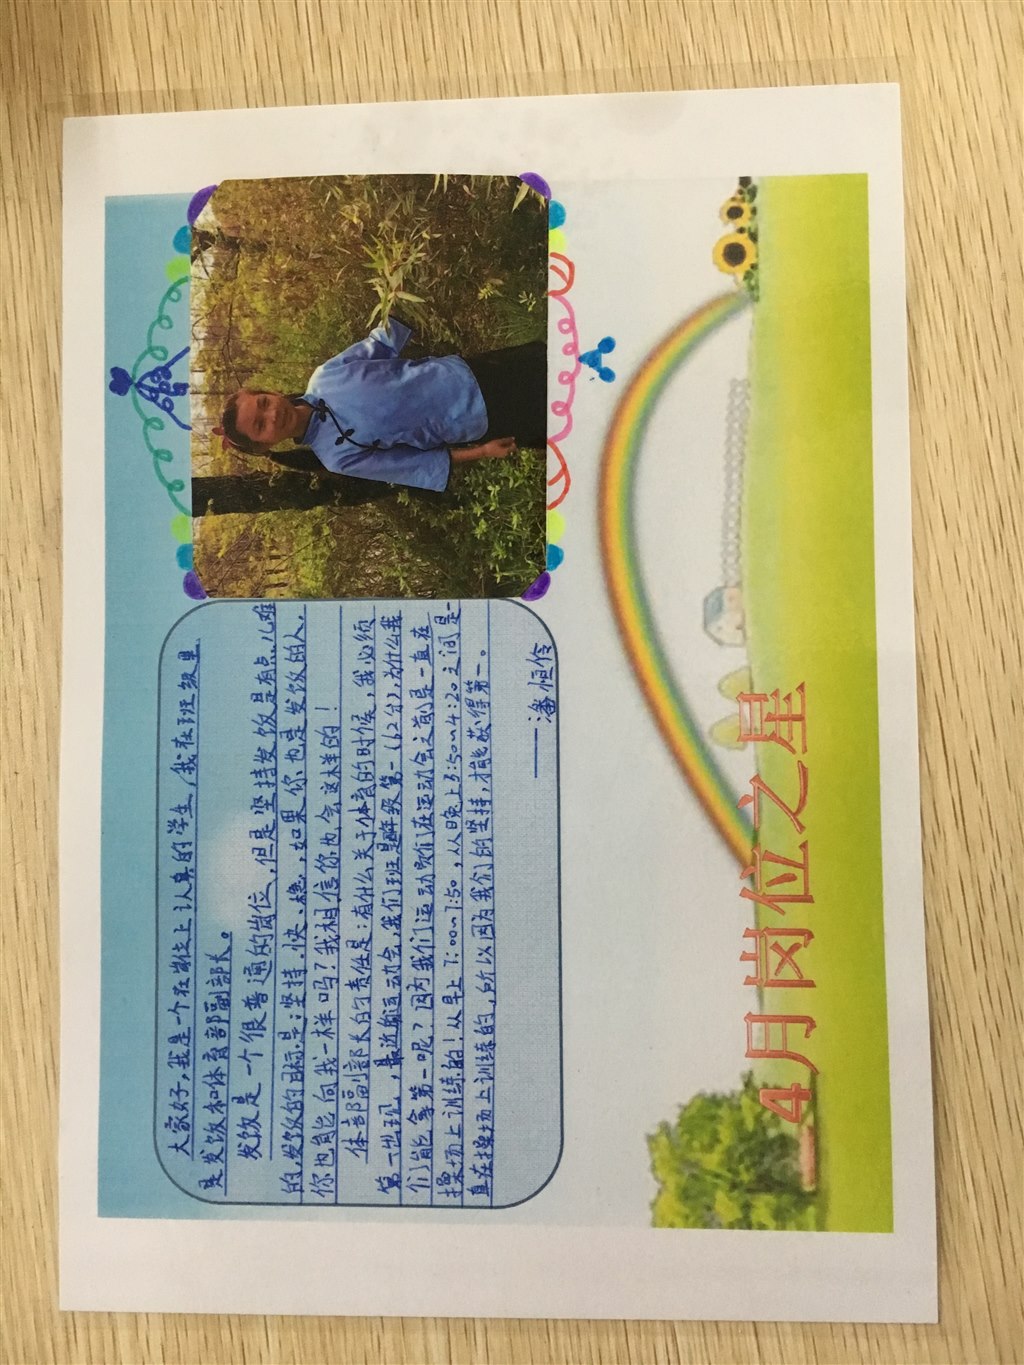 大家好，我是一个在岗位上认真的学生，我在班级里
是发饭和体育部副部长。
发饭是一个很普通的岗位，但是坚持发饭是有点儿难
的，发饭的目标是：坚持、快、稳，如果你也是发饭的人，
你也能向我一样吗？我相信你也会这样的！
体部副部长的责任是：有什么关于体育的时候，我必须
第一出现，最近的运动会，我们班是年级第一（62分），为什么我
们能拿第一呢？因为我们运动员们在运动会之前是一直在
操场上训练的！从早上7:00~7:50，从晚上3:50~4:20之间是一
直在操场上训练的，所以因为我们的坚持，才能获得第一。
——潘恒伶
4月岗位之星